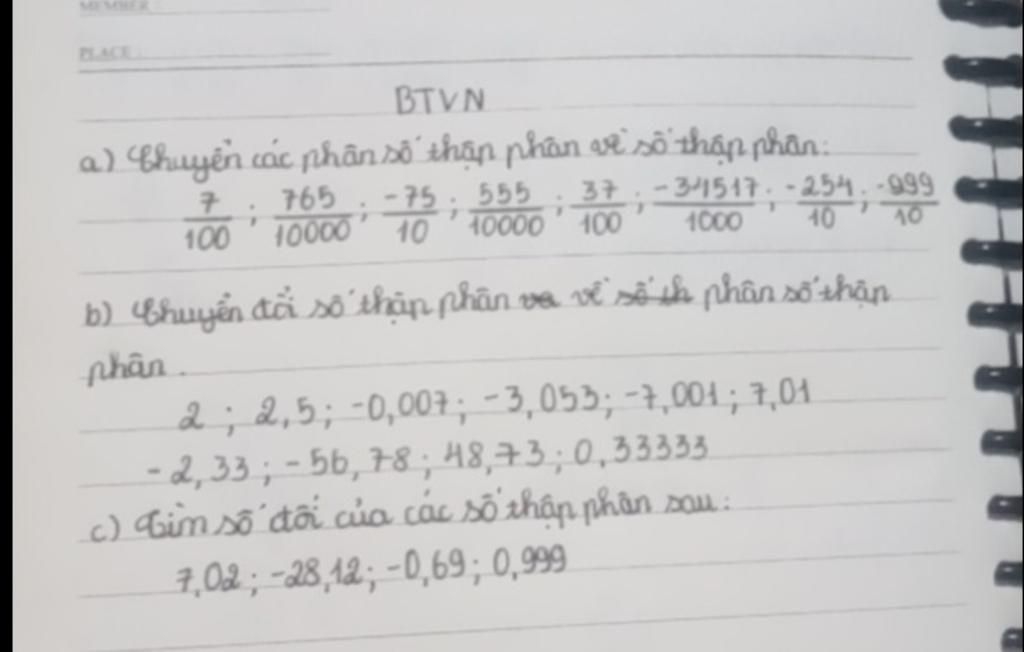 MEMBER :
PLACE :
BTVN
a) Chuyển các phân số thập phân về số thập phân:
7/100 ; 765/10000 ; -75/10 ; 555/10000 ; 37/100 ; -34517/1000 ; -254/10 ; -999/10
b) Chuyển đổi số thập phân về phân số thập
phân.
2 ; 2,5 ; -0,007 ; -3,053 ; -7,001 ; 7,01
-2,33 ; -56,78 ; 48,73 ; 0,33333
c) Tìm số đối của các số thập phân sau:
7,02 ; -28,12 ; -0,69 ; 0,999